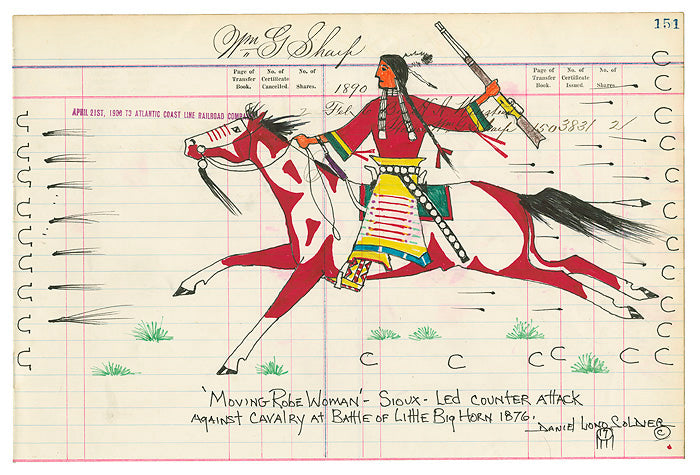 151
Wm G Sharp
Page of Transfer Book. No. of Certificate Cancelled. No. of Shares. Page of Transfer Book. No. of Certificate Issued. No. of Shares.
1890
APRIL 21ST, 1900 TO ATLANTIC COAST LINE RAILROAD COMPANY
Feb
3831 21
'MOVING ROBE WOMAN' - SIOUX - LED COUNTER ATTACK
AGAINST CAVALRY AT BATTLE OF LITTLE BIG HORN 1876.
DANIEL LONG SOLDIER
17 ©